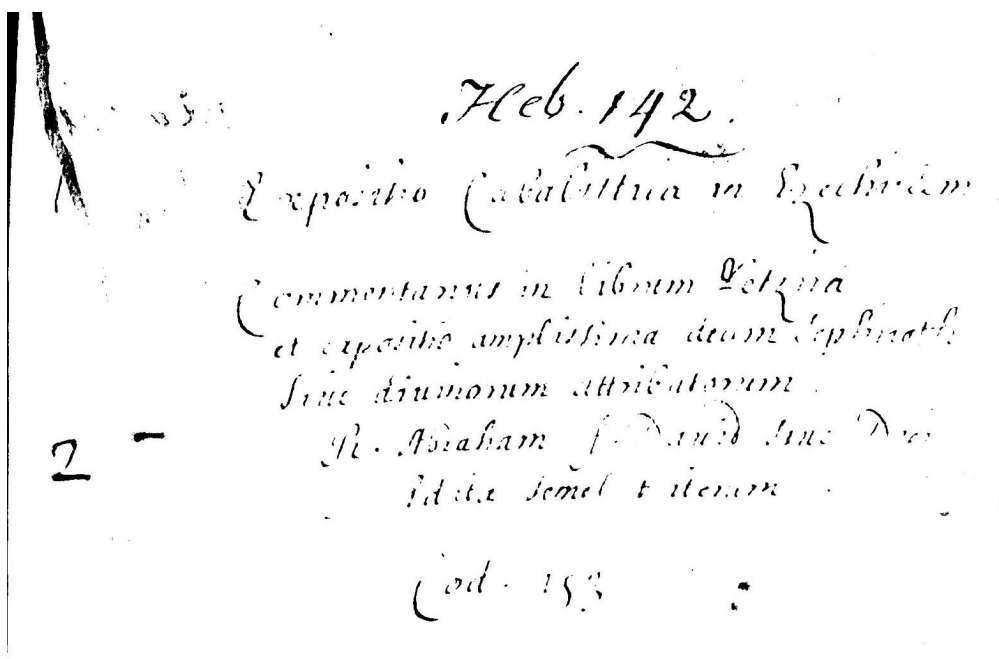 Heb. 142.
Expositio Cabalistica in Ezechielem
Commentarius in librum Yetzira
et expositio amplissima decem Sephiroth
sive divinorum attributorum.
R. Abraham f. David sive Dior
Edita semel & iterum
Cod. 153
2 -